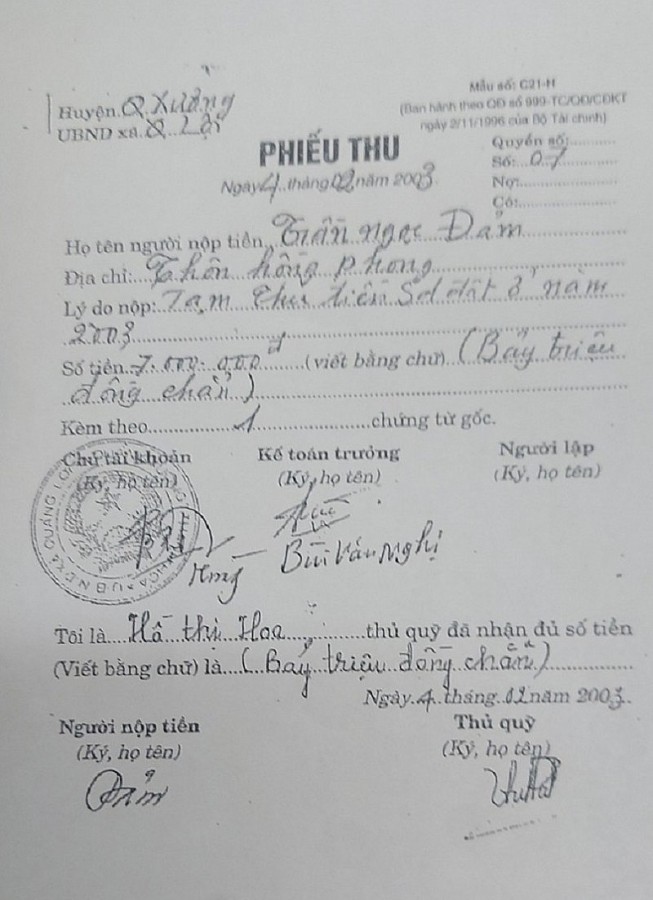 Mẫu số: C21-H
Huyện Q. Xương
(Ban hành theo QĐ số 999-TC/QĐ/CĐKT
UBND xã. Q. Lợi
ngày 2/11/1996 của Bộ Tài chính)
PHIẾU THU
Quyển số:...........
Ngày 4 tháng 02 năm 2003
Số:...07...........
Nợ:..................
Có:..................
Họ tên người nộp tiền Trần Ngọc Đảm
Địa chỉ: Thôn hồng phong
Lý do nộp: Tạm thu tiền Sd đất ở năm
2003
Số tiền 7.000.000đ (viết bằng chữ) (Bảy triệu
đồng chẵn)
Kèm theo........1........chứng từ gốc.
Chủ tài khoản Kế toán trưởng Người lập
(Ký, họ tên) (Ký, họ tên) (Ký, họ tên)
Bùi Văn Nghị
Tôi là Hồ thị Hoa thủ quỹ đã nhận đủ số tiền
(Viết bằng chữ) là (Bảy triệu đồng chẵn)
Ngày 4 tháng 02 năm 2003.
Người nộp tiền Thủ quỹ
(Ký, họ tên) (Ký, họ tên)
Đảm